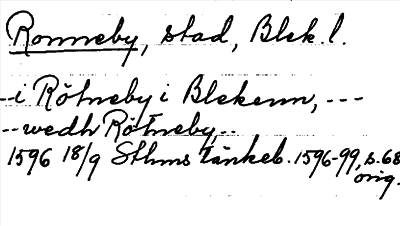 Ronneby, stad, Blek. l.
--i Rötneby i Blekenn, ---
--wedh Rötneby,--
1596 18/9 Sthms tänkeb. 1596-99, s. 68
orig.